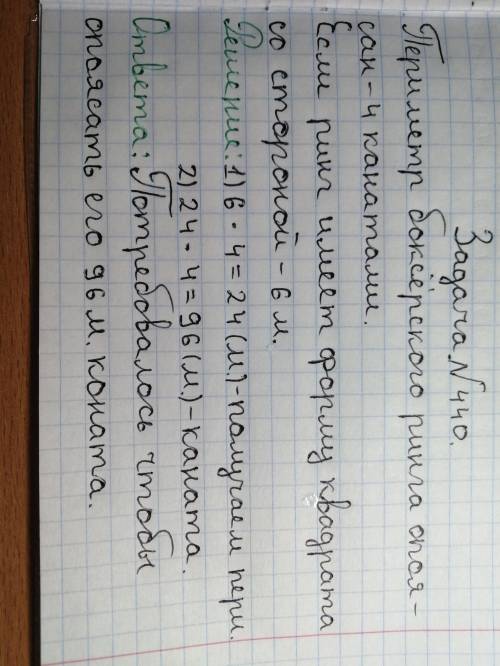 Задача N440.
Периметр боксёрского ринга опоя-
сан - 4 канатами.
Если ринг имеет форму квадрата
со стороной - 6 м.
Решение: 1) 6 · 4 = 24 (м.) - получаем пери.
2) 24 · 4 = 96 (м) - каната.
Ответа: Потребовалось чтобы
опоясать его 96 м. коната.